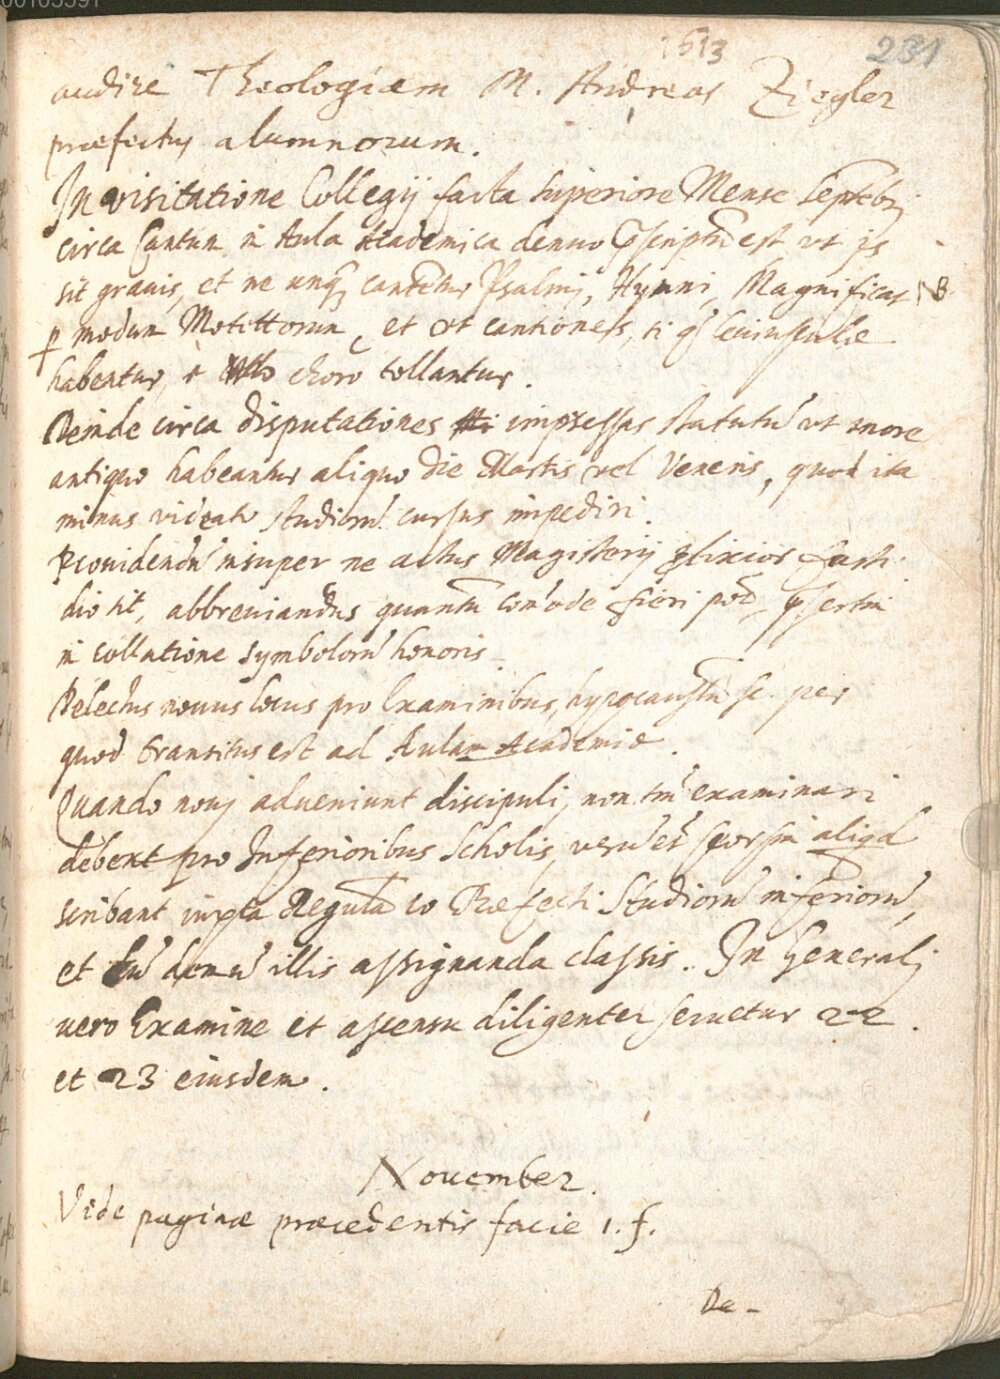 1613
231
audire Theologiam M. Andreas Ziegler
præfectus alumnorum.
In visitatione Collegij facta superiore Mense Septēb.
circa Cantum in Aula Academica denuo p̱scriptū est ut is
sit grauis, et ne unq̄ cantētur Psalmi, Hymni, Magnificat NB
p modum Motettorum, et ut cantiones, si q̄
habentur, è choro tollantur.
Deinde circa disputationes impressas statutū ut more
antiquo habeantur aliquo die Martis vel Veneris, quod ita
minus videatr studiorū cursus impediri.
Prouidendū insuper ne actus Magisterij plixior fasti-
dio sit, abbreuiandus quantū com̄ode fieri pōt, p̱sertim
in collatione symbolorū honoris.
Delectus nouus locus pro Examinibus, hypocaustū sc. per
quod transitus est ad Aulam Academiæ.
Quando nouj adueniunt discipuli, non tm̄ examinari
debent pro Inferioribus Scholis, verū et̄ seorsim aliqd
scribant iuxta Regulā 10 Præfecti Studiorū inferiorū,
et tū demū illis assignanda classis. In Generalj
uero Examine et ascensu diligenter seruetur 22.
et 23 eiusdem.
November.
Vide paginæ præcedentis facie 1. f.
De-